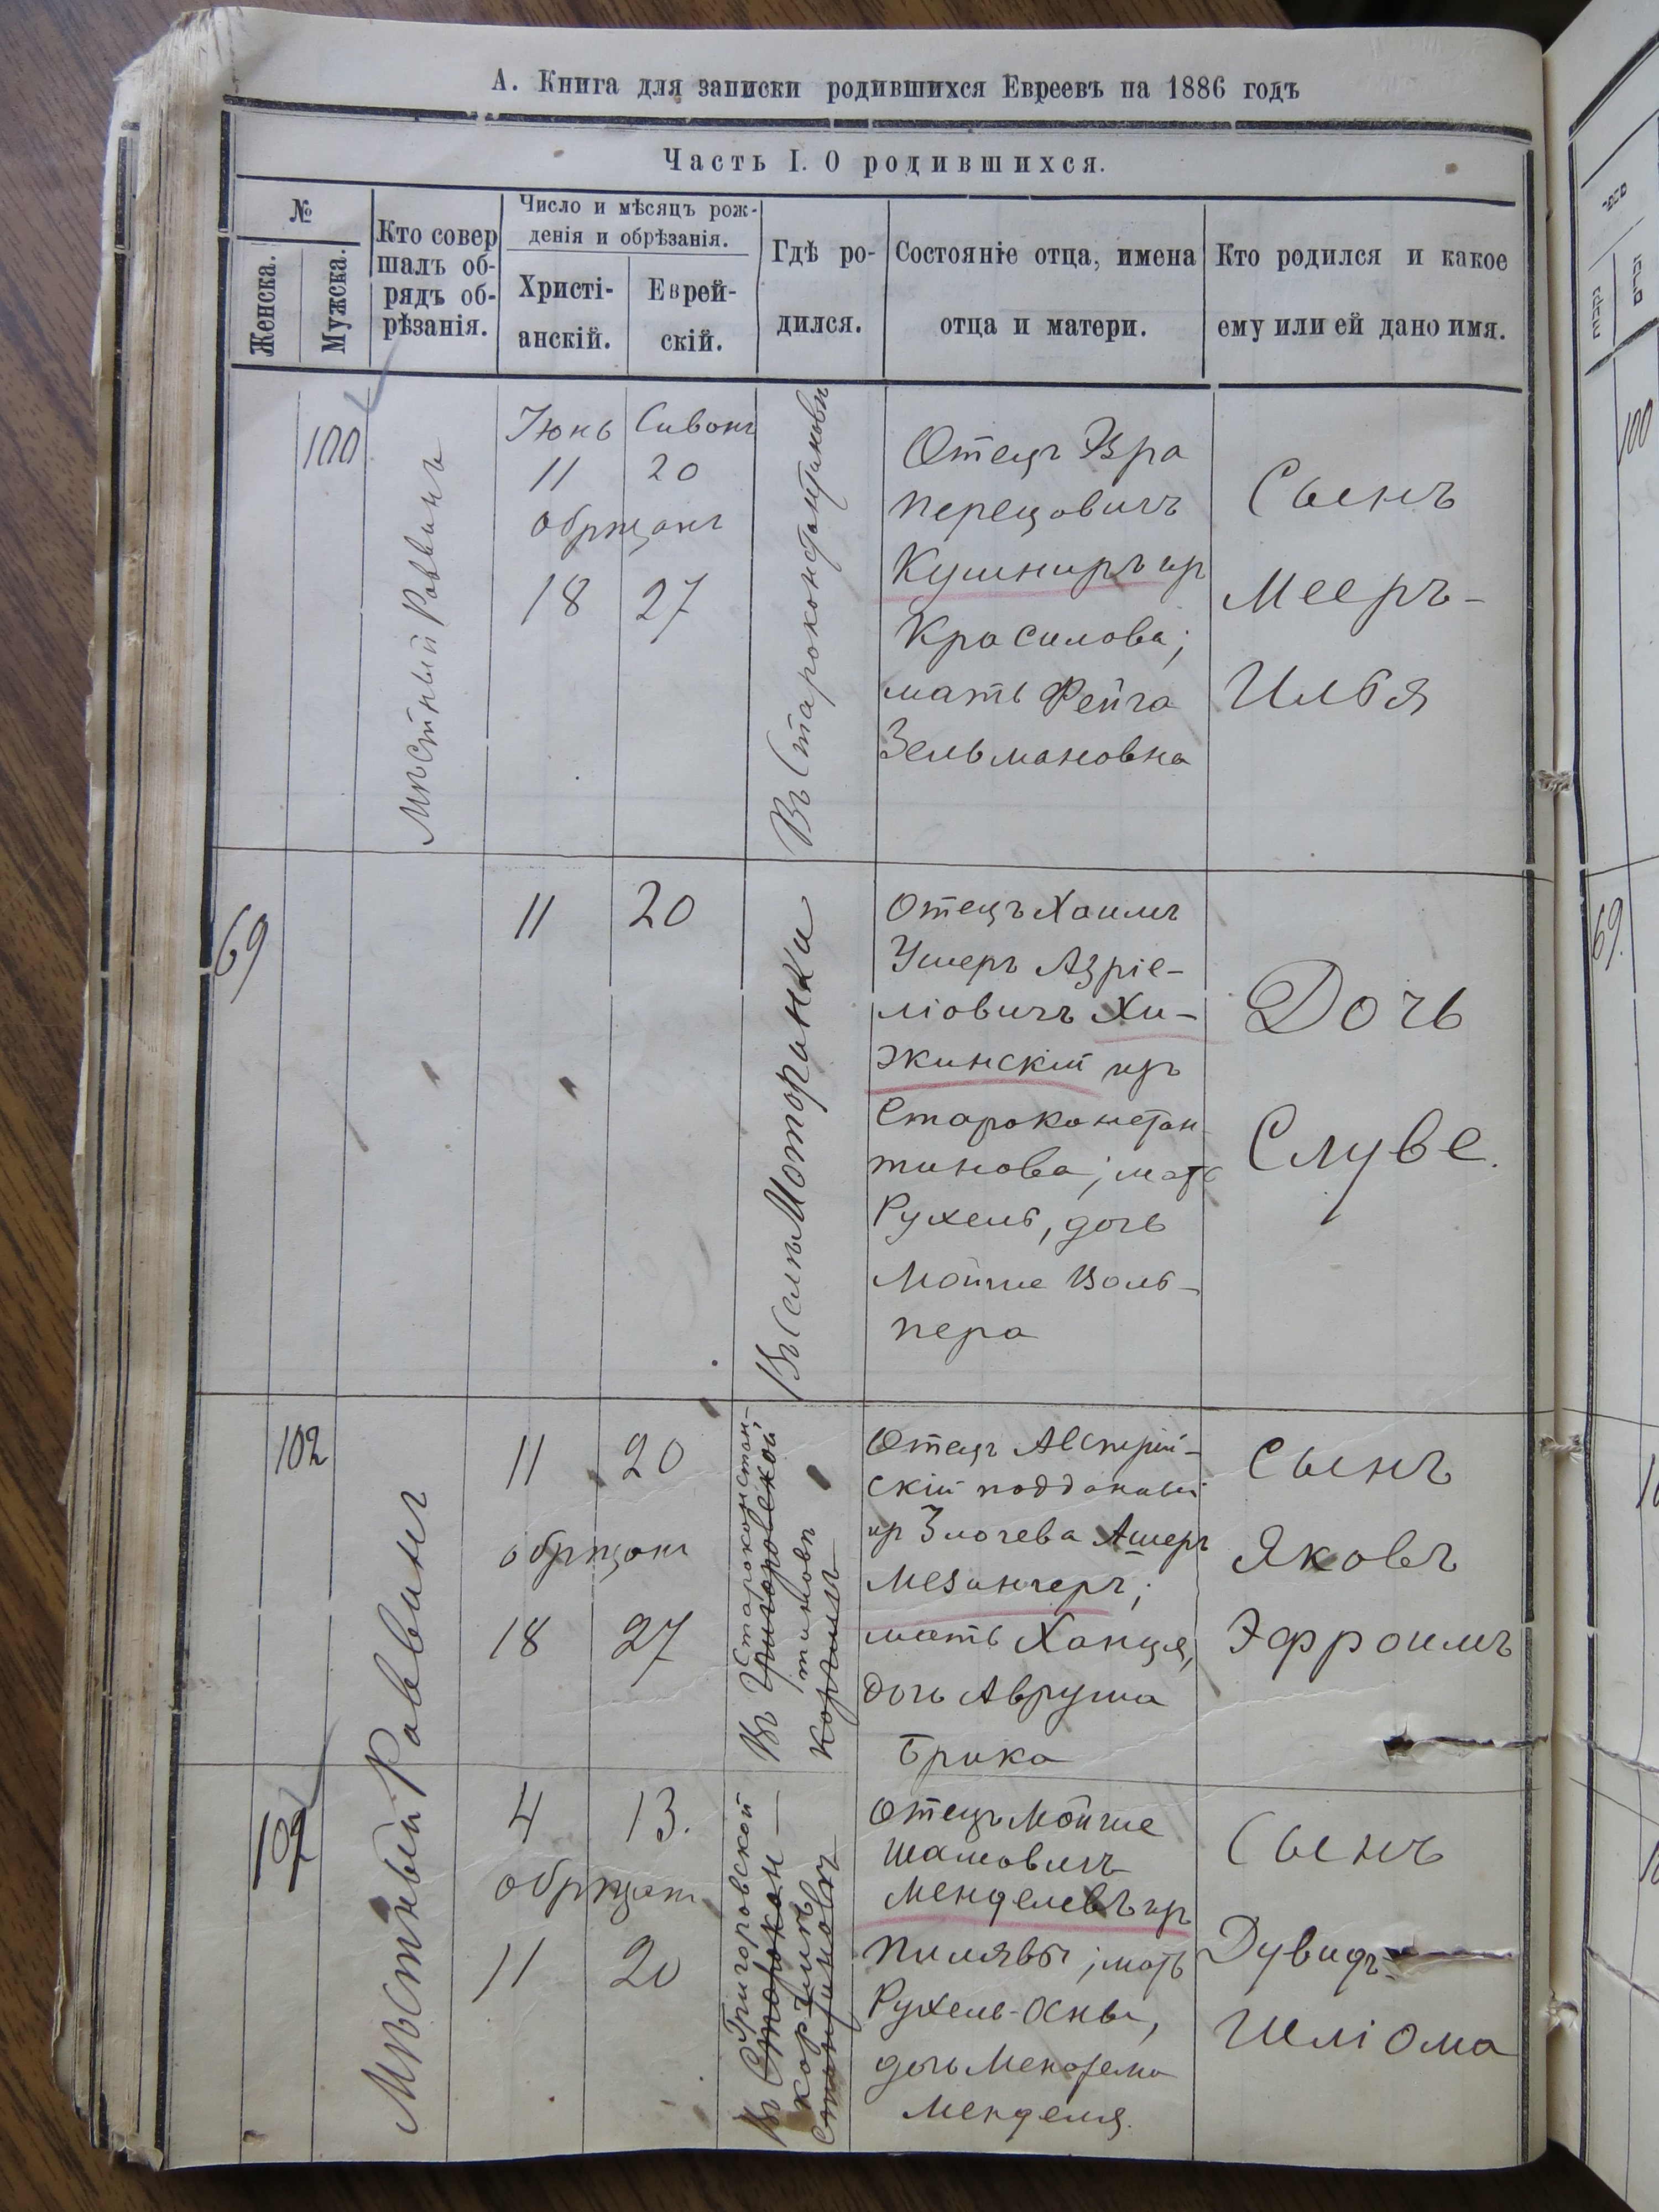 А. Книга для записки родившихся Евреевъ на 1886 годъ
Часть I. О родившихся.
№
Женска.
Мужска.
Кто совер
шалъ об-
рядъ об-
рѣзанія.
Число и мѣсяцъ рож-
денія и обрѣзанія.
Христі-
анскій.
Еврей-
скій.
Гдѣ ро-
дился.
Состояніе отца, имена
отца и матери.
Кто родился и какое
ему или ей дано имя.
100
Мѣстный Раввинъ
Іюнь
11
Сивонъ
20
обрѣзанъ
18
27
Въ Староконстантиновѣ
Отецъ Эзра
Перецовичъ
Кушниръ изъ
Красилова;
мать Фейга
Зельмановна
Сынъ
Мееръ-
Илья
69
11
20
Въ селѣ Моторанки
Отецъ Хаимъ
Ушеръ Азріе-
ліовичъ Хи-
жинскій изъ
Староконстан-
тинова; мать
Рухель, дочь
Мойше Воль-
пера
Дочь
Слуве.
102
Мѣстный Раввинъ
11
20
обрѣзанъ
18
27
Въ
Староконстан-
Григоровской
тиновѣ
корчмѣ
Отецъ Австрій-
скій подданный
изъ Злочева Ашеръ
Мезингеръ;
мать Ханця,
дочь Аврума
Брика
Сынъ
Яковъ
Эфроимъ
4
13.
обрѣзанъ
11
20
Въ
Григоровской
Старокон-
корчмѣ
стантиновѣ
Отецъ Мойше
Шамовичъ
Менделевъ изъ
Пилявы; мать
Рухель-Осны,
дочь
Менделя.
Сынъ
Дувидъ-
Шліома
100
69.